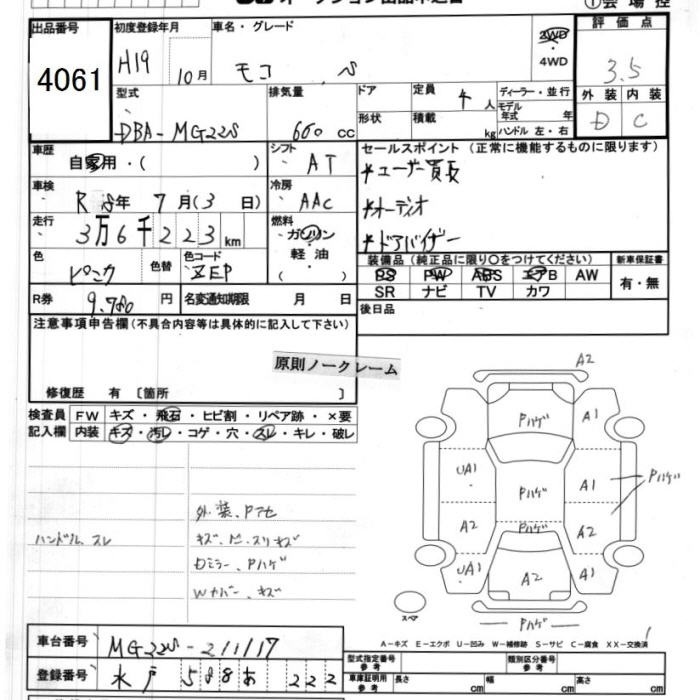 出品番号
初度登録年月
車名・グレード
評価点
4061
H19 10月
モコ
2WD
・
4WD
3.5
型式
排気量
ドア
定員 4人
ディーラー・並行
外装 内装
モデル年式 年
D C
DBA-MG22S
660 cc
形状
積載 kg
ハンドル 左・右
車歴
自家用・( )
シフト AT
セールスポイント(正常に機能するものに限ります)
*ユーザー買取
車検
7月(3日)
冷房 AAC
*オーディオ
走行
3万6千223km
燃料
ガソリン
・
軽油
*ドアバイザー
色
ピンク
色替
色コード
装備品(純正品に限り〇をつけてください)
新車保証書
PS PW ABS エアB AW
有・無
SR ナビ TV カワ
R券 9.780円
名変通知期限 月 日
後日品
注意事項申告欄(不具合内容等は具体的に記入して下さい)
原則ノークレーム
修復歴 有〔箇所 〕
検査員記入欄
FW キズ・飛石・ヒビ割・リペア跡・×要
内装 キズ・汚レ・コゲ・穴・スレ・キレ・破レ
A2
Pハゲ
A1
UA1
Pハゲ
A1
Pハゲ
A2
Pハゲ
A2
UA1
A2
A1
Pハゲ
スペア
外装、Pアセ
ハンドル、スレ
Dミラー、Pハゲ
Wカバー、キズ
A-キズ E-エクボ U-凹み W-補修跡 S-サビ C-腐食 XX-交換済
車台番号 MG22S-211117
登録番号 水戸 588あ 222
型式指定番号 参考
類別区分番号 参考
車庫証明用 参考
長さ cm
幅 cm
高さ cm